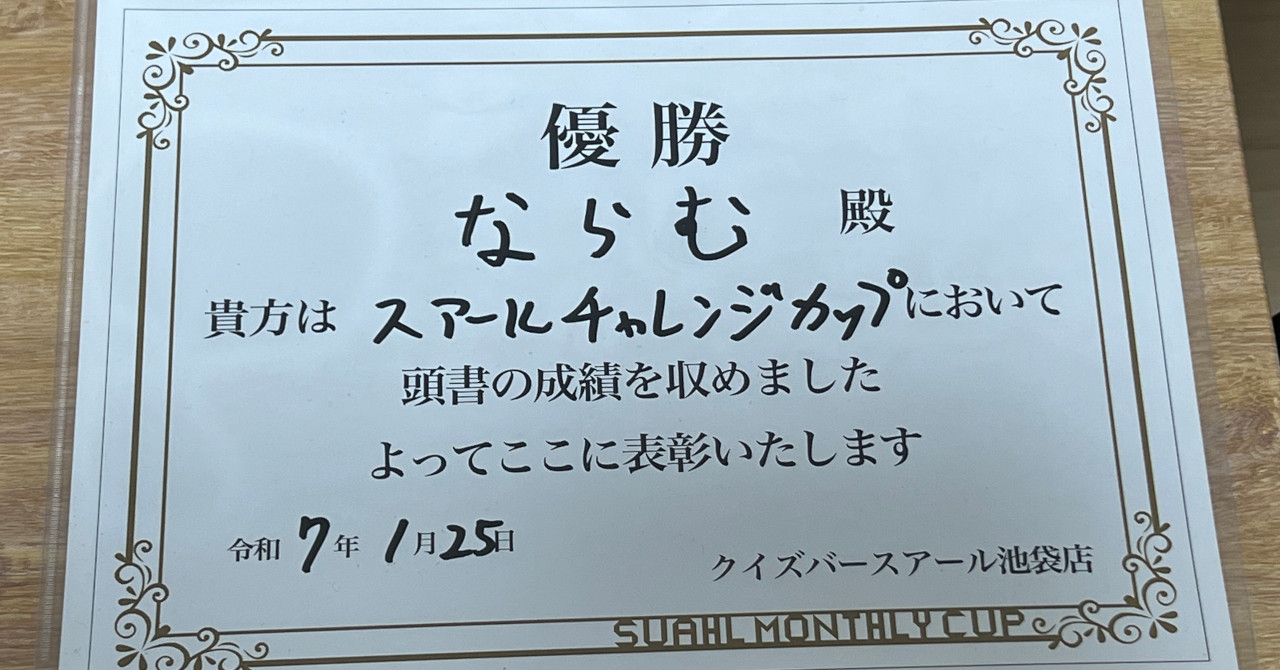 優勝
ならむ 殿
貴方は スアールチャレンジカップにおいて
頭書の成績を収めました
よってここに表彰いたします
令和 7年 1月25日
クイズバースアール池袋店
SUAHL MONTHLY CUP